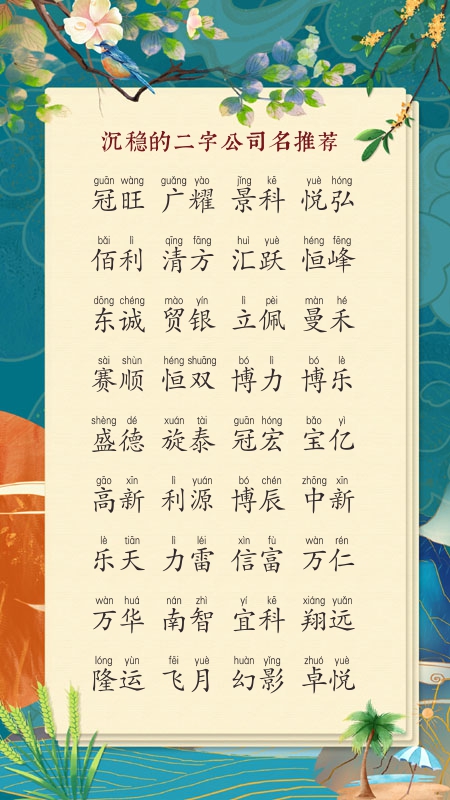 沉稳的二字公司名推荐
guān wàng guǎng yào jǐng kē yuè hóng
冠旺 广耀 景科 悦弘
bǎi lì qīng fāng huì yuè héng fēng
佰利 清方 汇跃 恒峰
dōng chéng mào yín lì pèi màn hé
东诚 贸银 立佩 曼禾
sài shùn héng shuāng bó lì bó lè
赛顺 恒双 博力 博乐
shèng dé xuán tài guān hóng bǎo yì
盛德 旋泰 冠宏 宝亿
gāo xīn lì yuán bó chén zhōng xīn
高新 利源 博辰 中新
lè tiān lì léi xìn fù wàn rén
乐天 力雷 信富 万仁
wàn huá nán zhì yí kē xiáng yuǎn
万华 南智 宜科 翔远
lóng yùn fēi yuè huàn yǐng zhuó yuè
隆运 飞月 幻影 卓悦